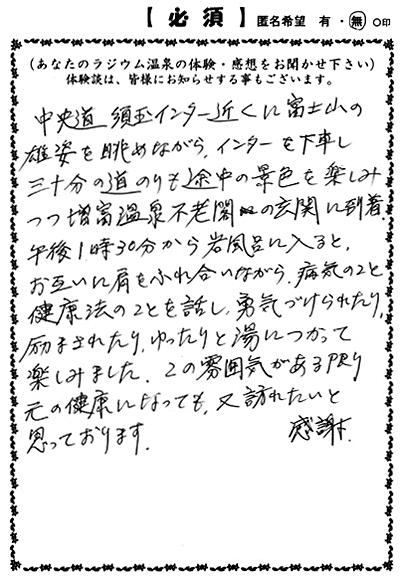 【必須】 匿名希望 有・無 ○印
(あなたのラジウム温泉の体験・感想をお聞かせ下さい)
体験談は、皆様にお知らせする事もございます。
中央道 須玉インター近くに富士山の
雄姿を眺めながら、インターを下車し
三十分の道のりも途中の景色を楽しみ
つつ増富温泉不老閣の玄関に到着
午後1時30分から岩風呂に入ると、
お互いに肩をふれ合いながら、病気のこと
健康法のことを話し、勇気づけられたり、
励まされたり、ゆったりと湯につかって
楽しみました。この雰囲気がある限り
元の健康になっても、又訪れたいと
思っております。
感謝。